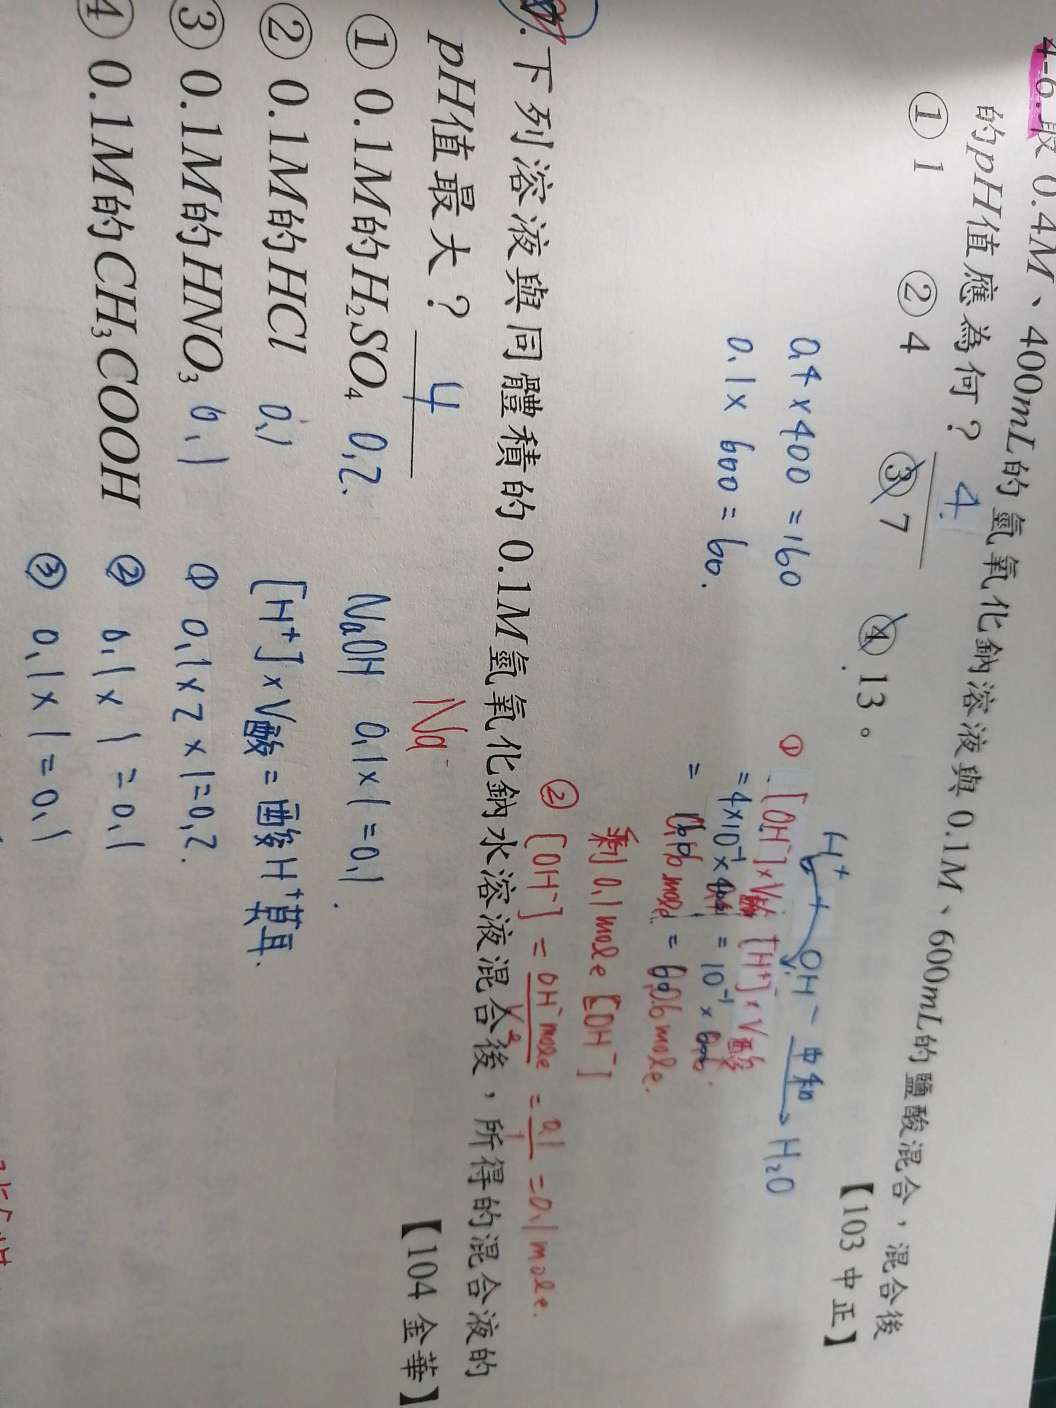 4-6.取 0.4M、400mL的氫氧化鈉溶液與 0.1M、600mL的鹽酸混合，混合後
的pH值應為何？ 4 【103 中正】
① 1 ② 4 ③ 7 ④ 13。
0.4×400 =160
0.1× 600 = 60.
H⁺ + OH⁻ 中和→ H₂O
① [OH⁻]×V鹼 [H⁺]×V酸
=4×10⁻¹×0.4 = 10⁻¹×0.6
= 0.16 mole = 0.06 mole.
剩 0.1 mole [OH⁻]
② [OH⁻] = OH⁻mole/V = 0.1/1 = 0.1 mole.
下列溶液與同體積的 0.1M氫氧化鈉水溶液混合後，所得的混合液的
pH值最大？ 4 Na 【104 金華】
① 0.1M的H₂SO₄ 0.2. NaOH 0.1×1=0.1.
② 0.1M的HCl 0.1 [H⁺]×V酸 = 酸H⁺莫耳.
③ 0.1M的HNO₃ 0.1 ① 0.1×2×1=0.2.
④ 0.1M的CH₃COOH ② 0.1×1 = 0.1
③ 0.1×1=0.1